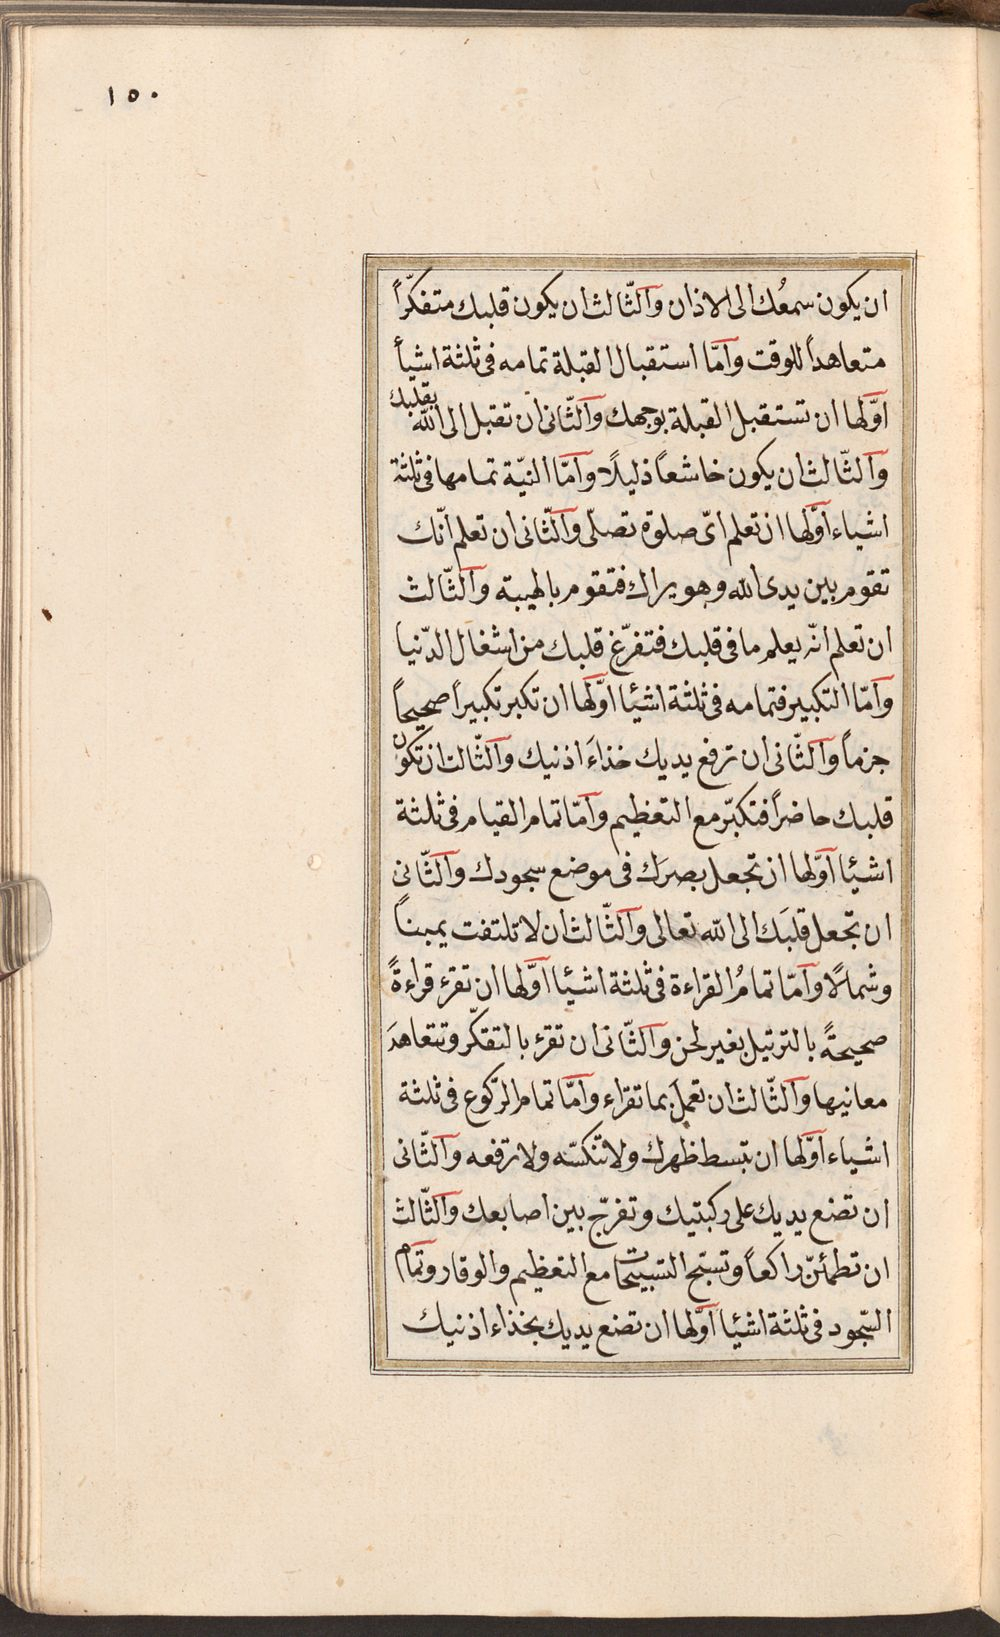 ١٥٠
ان يكون سمعُك الى الاذان والثّالث ان يكون قلبك متفكّراً
متعاهداً للوقت وامّا استقبال القبلة تمامه فى ثلثة اشيأ
اوّلها ان تستقبل القبلة بوجهك والثّانى ان تقبل الى الله بقلبك
والثّالث ان يكون خاشعاً ذليلًا وامّا النيّة تمامها فى ثلثة
اشياء اوّلها ان تعلم اىّ صلوة تصلّى والثّانى ان تعلم انّك
تقوم بين يدى الله وهو يراك فتقوم بالهيبته والثّالث
ان تعلم انّه يعلم ما فى قلبك فتفرّغ قلبك من اشغال الدّنيا
وامّا التكبير فتمامه فى ثلثة اشئا اوّلها ان تكبر تكبيراً صحيحاً
جزماً والثّانى ان ترفع يديك خذاءَ اذنيك والثّالث ان تكون
قلبك حاضراً فتكبّر مع التعظيم وامّا تمام القيام فى ثلثة
اشئا اوّلها ان تجعل بصرَك فى موضع سجودك والثّانى
ان تجعل قلبَك الى الله تعالى والثّالث ان لا تلتفت يميناً
وشمالًا وامّا تمامُ القراءة فى ثلثة اشئا اوّلها ان تقرء قراءةً
صحيحةً بالترتيل بغير لحن والثّانى ان تقرء بالتفكّر وتتعاهدَ
معانيها والثّالث ان تعملَ بما تقراء وامّا تمام الرّكوع فى ثلثة
اشياء اوّلها ان تبسط ظهرك ولا تنكسّه ولا ترفعه والثّانى
ان تضع يديك على ركبتيك وتفرّج بين اصابعك والثّالث
ان تطمأنّ راكعاً وتسبّح التسبيحات مع التعظيم والوقار وتمام
السّجود فى ثلثة اشئا اوّلها ان تضع يديك بخذاء اذنيك